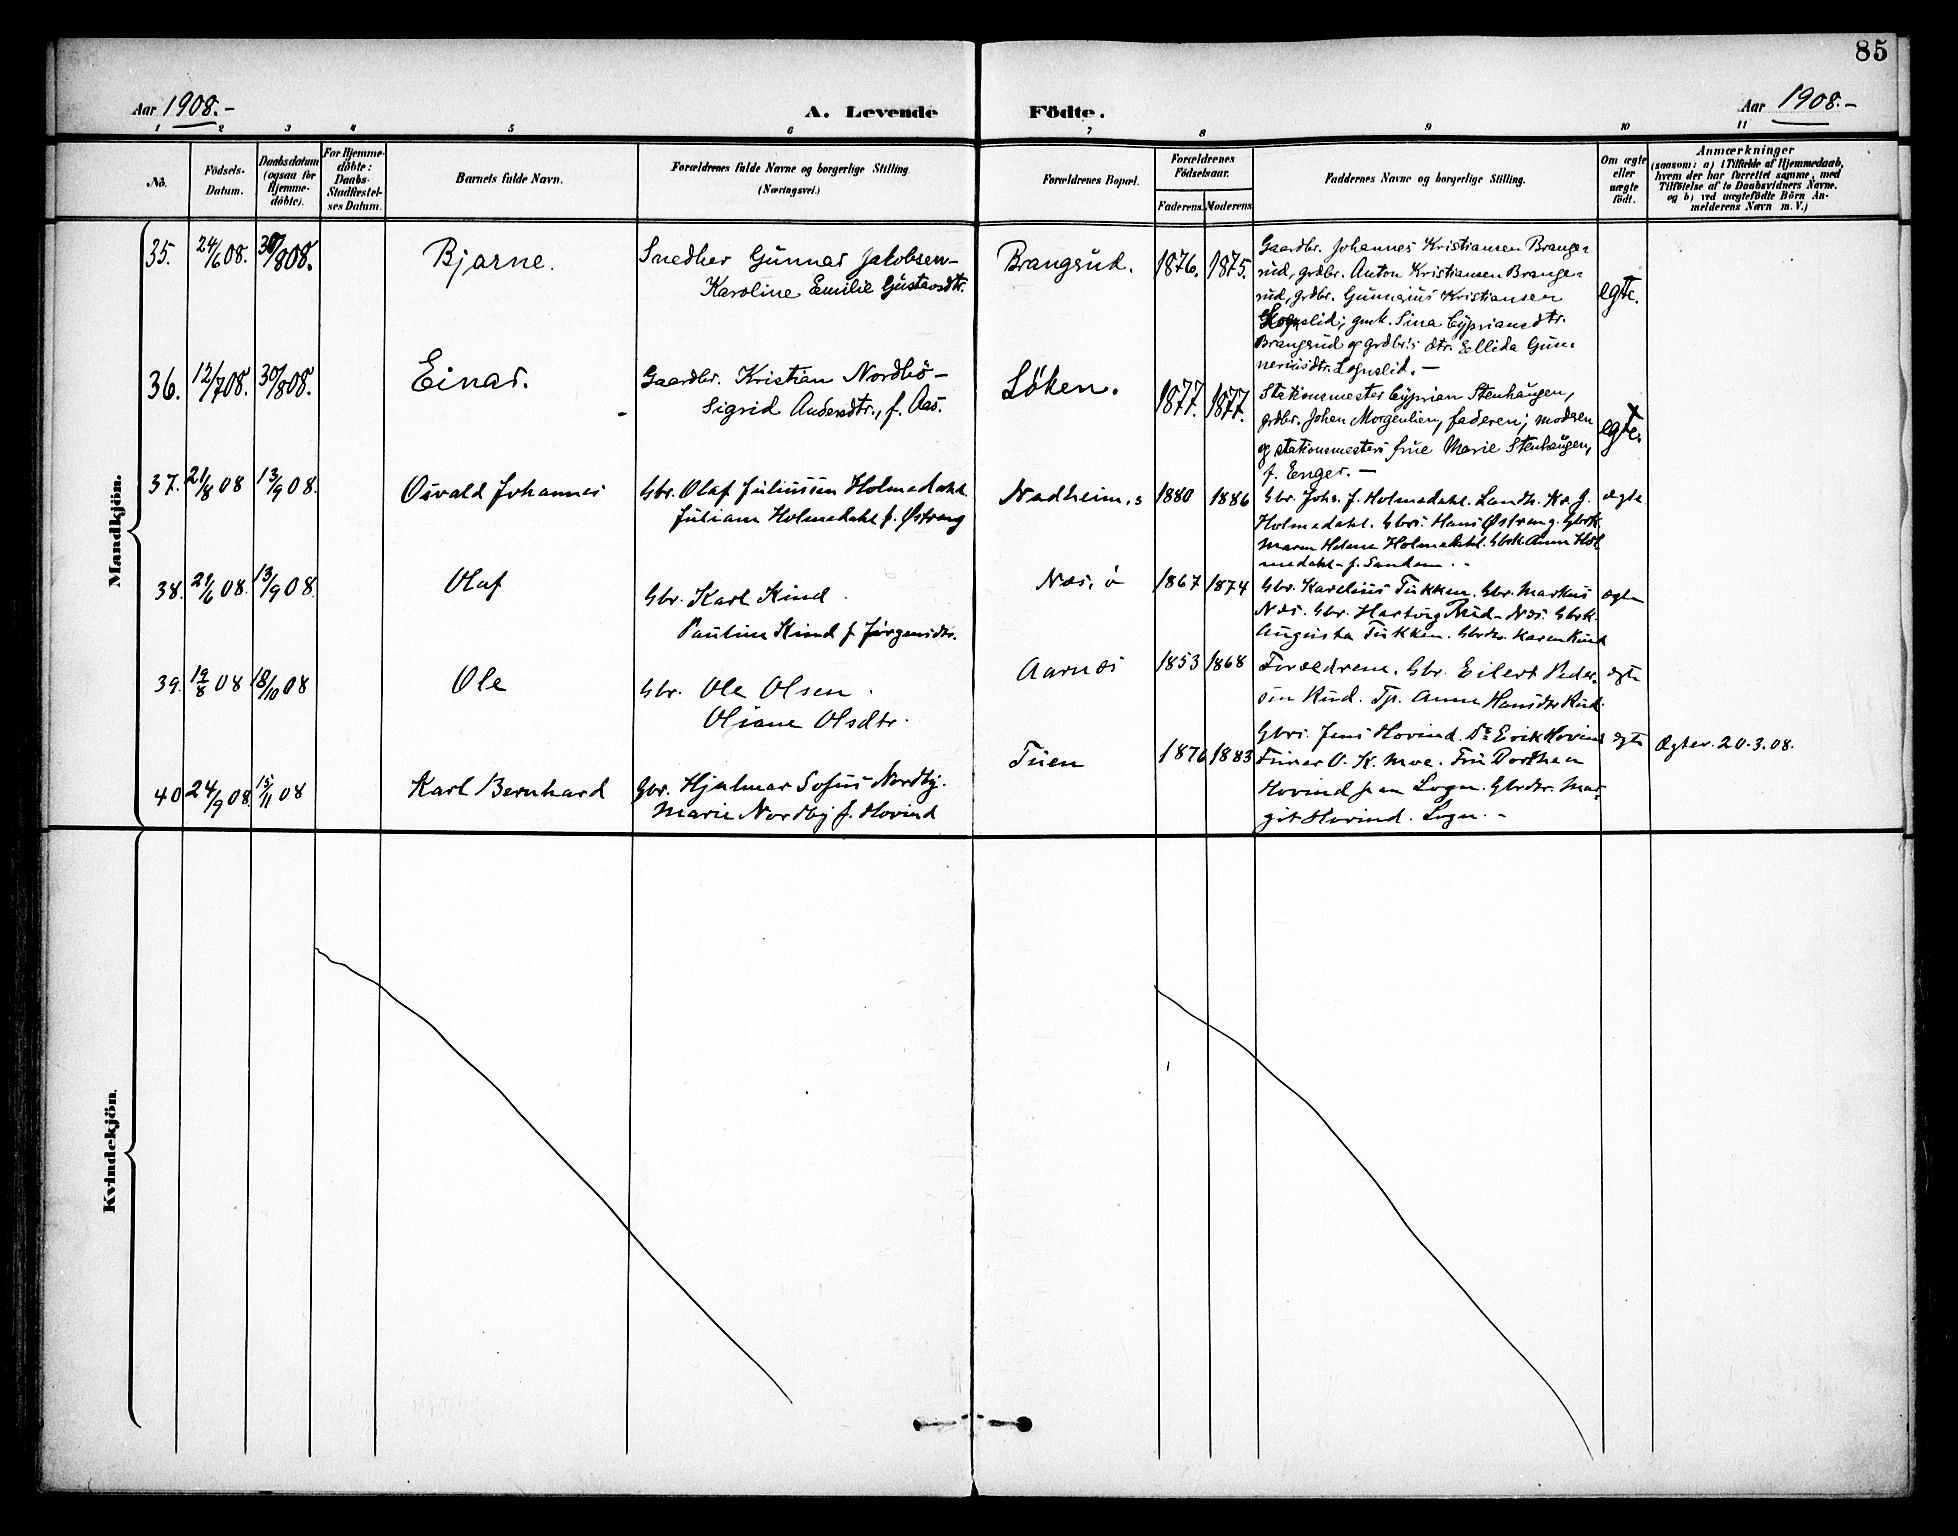 85
Aar 1908.-
A. Levende Födte.
Aar 1908.-
1 2 3 4 5 6 7 8 9 10 11
No.
Födsels-
Datum.
Daabsdatum
(ogsaa for
Hjemme-
döbte).
For Hjemme-
döbte:
Daabs-
Stadfæstel-
ses Datum.
Barnets fulde Navn.
Forældrenes fulde Navne og borgerlige Stilling
(Næringsvei.)
Forældrenes Bopæl.
Forældrenes
Födselsaar.
Faderens. Moderens.
Faddernes Navne og borgerlige Stilling.
Om ægte
eller
uægte
födt.
Anmærkninger
(saasom: a) i Tilfælde af Hjemmedaab,
hvem der har forrettet samme, med
Tilföielse af to Daabsvidners Navne.
og b) ved uægtefödte Börn An-
melderens Navn m. V.)
Mandkjön.
35. 24/6 08. 30/8 08. Bjarne.
Snedker Gunnar Jakobsen-
Karoline Emilie Gustavsdtr.
Brangsrud. 1876. 1875.
Gaardbr. Johannes Kristiansen Brangs-
rud, grdbr. Anton Kristiansen Brangs-
rud, grdbr. Gunnerius Kristiansen
Lognslid; gmk. Sina Cypriansdtr.
Brangsrud og grdbr.s dtr. Ellida Gun-
neriusdtr. Lognslid. -
egte.
36. 12/7 08. 30/8 08. Einar.
Gaardbr. Kristian Nordbö -
Sigrid Andersdtr., f. Aas.
Löken. 1877. 1877.
Stationsmester Cyprian Stenhaugen,
grdbr. Johan Morgenlien, faderen; modren
og stationsmesters frue Marie Stenhaugen,
f. Enger. -
egte
37. 21/8 08 13/9 08. Osvald Johannes
Gbr. Olaf Juliussen Holmedahl.
Juliane Holmedahl f. Østreng
Nadheim. 1880 1886
Gbr. Johs. J. Holmedahl. Landh. K. J.
Holmedahl. Gbrs. Hans Østreng. Gbrk.
Maren Helene Holmedahl. Gbrk. Anne Hol
medahl f.
ægte
38. 21/6 08. 13/9 08. Olaf
Gbr. Karl Kind.
Pauline Kind f. Jörgensdtr.
Næs, ö 1867 1874
Gbr. Karelius Tukken. Gbr. Markus
Næs. Gbr. Hartvig Rud-Næs. Gbrk.
Augusta Tukken. Gbrdtr. Karen Rud
ægte
39. 19/8 08 18/10 08 Ole
Gbr. Ole Olsen.
Oliane Olsdtr.
Aarnæs 1853 1868
Forældrene. Gbr. Eilert Peder-
sen Rud. Tp. Anne Hansdtr Rud.
ægte
40 24/9 08. 15/11 08 Karl Bernhard
Gbr. Hjalmar Sofus Nordby.
Marie Nordby f. Hovind
Tuen 1876 1883
Gbrs. Jens Hovind. Do Erik Hovind
Furer O. K. Moe. Fru Dorthea
Hovind f. en Logn. Gbrdtr. Mar-
git Hovind. Logn. -
ægte Ægtev. 20.3.08.
Kvindekjön.